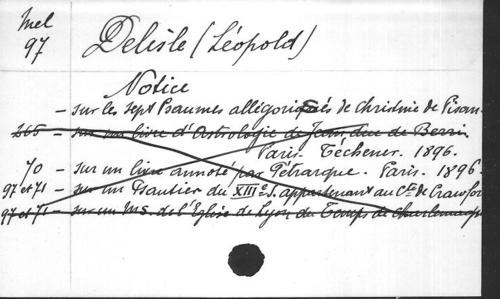 Mel
97
Delisle (Léopold)
Notice
— sur les sept Psaumes allégorisés de Christine de Pisan.
265 — sur un livre d'Astrologie de Jean duc de Berri.
Paris. Téchener. 1896.
70 — sur un livre annoté par Pétrarque. Paris. 1896.
97 et 71 — sur un Psautier du XIIIe S. appartenant au Cte de Crawfor
97 et 71 — sur un ms. de l'Eglise de Lyon du Temps de Charlemagne